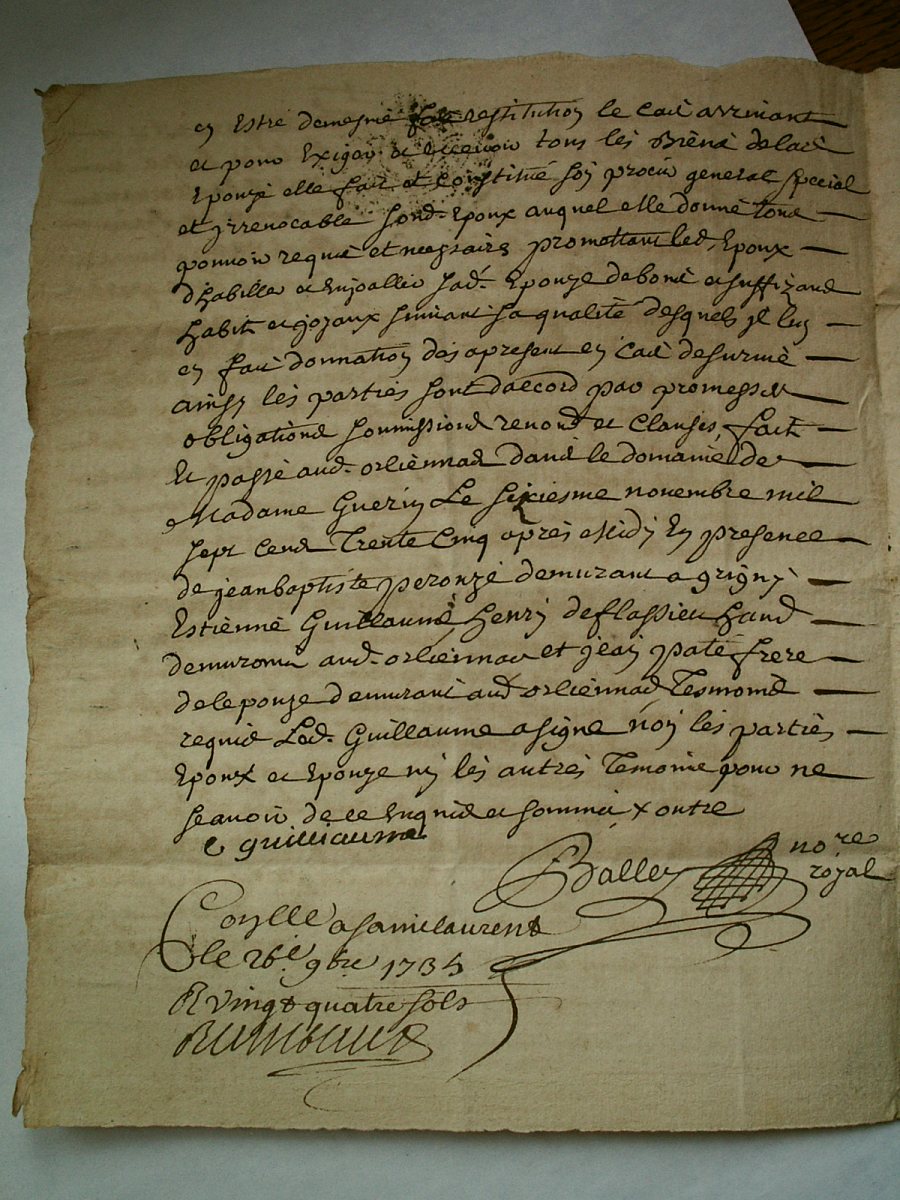 en Estre demesme faite restitution le cas arrivant
et pour Exiger et recevoir tous les Biens de lad.
Epouze elle fait et constitue son procur general special
et yrrevocable sond. Epoux auquel elle donne tout
pouvoir requis et necessaire promettant led. Epoux
d'habille et Enjoaller sad. Epouze de bons et suffizand
habits et joyaux suivant sa qualité desquels jl luy
en fait donnation des apresent en cas de survie
ainsy les parties sont daccord par promesses
obligations soumissions renond. et clauses, fait
Et passé aud. orliennas dans le domaine de
Madame Guerin Le sixiesme novembre mil
sept cend Trente Cinq apres Midy En presence
de jean baptiste peronze demurant a grigny
Estienne Guillaume, henry deflassieu
demurans aud. orliennas et jean paté frere
de lepouze demurant aud. orliennas Tesmoins
requis Led. Guillaume a signe non les parties
Epoux et Epouze ny les autres Temoins pour ne
scavoir de ce Enquis et sommés x outre
e guilliaume
Balley no.re
royal
Conlle a saint laurent
le 26e. 9bre 1735
R vingt quatre sols